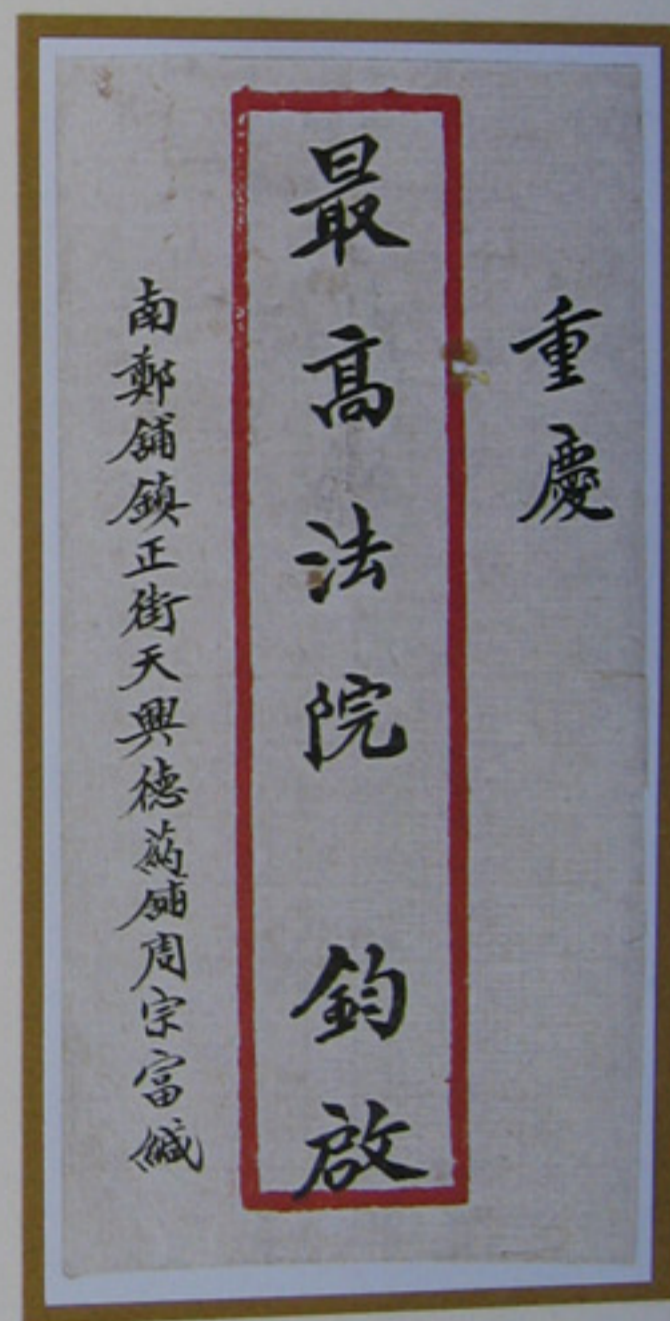 重慶
最高法院 鈞啟
南鄭舖鎮正街天興德葯舖周宗富緘